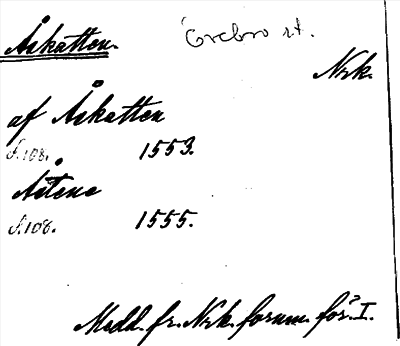 Åskatten. Örebro st.
Nrk.
af Åskatten
f. 108. 1553.
Åstene
f. 108. 1555.
Medd. fr. Nrk. fornm. för. I.